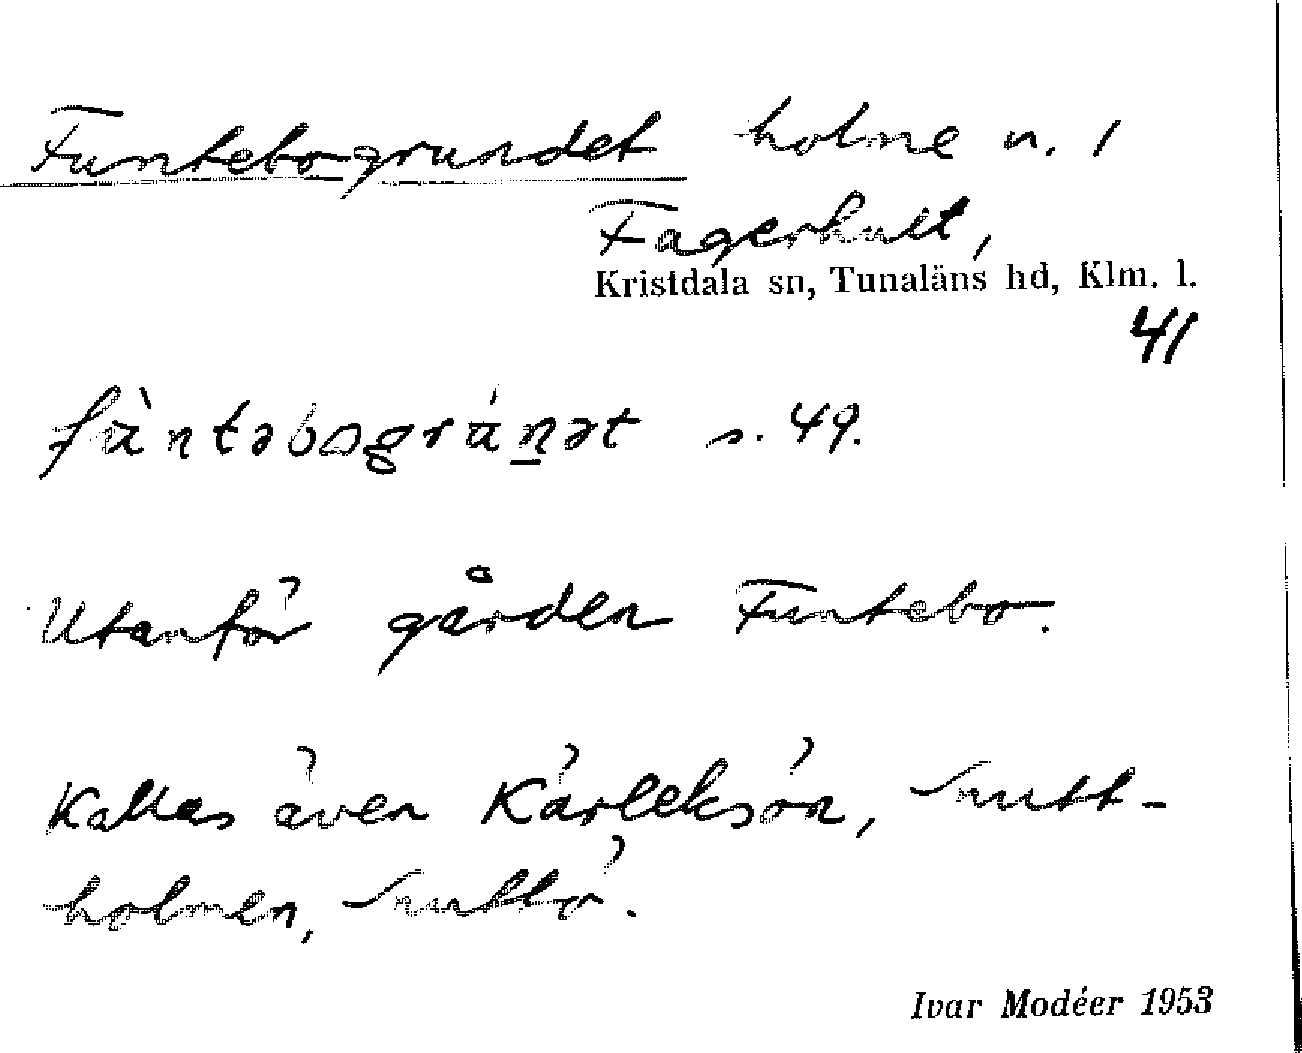 Funtebogrundet holme n. 1
Fagerhult,
Kristdala sn, Tunaläns hd, Klm. l.
41
fu̇̀ntəbogrúṉət s. 49.
Utanför gården Funtebo.
Kallas även Kärleksön, Snutt-
holmen, Snuttö.
Ivar Modéer 1953